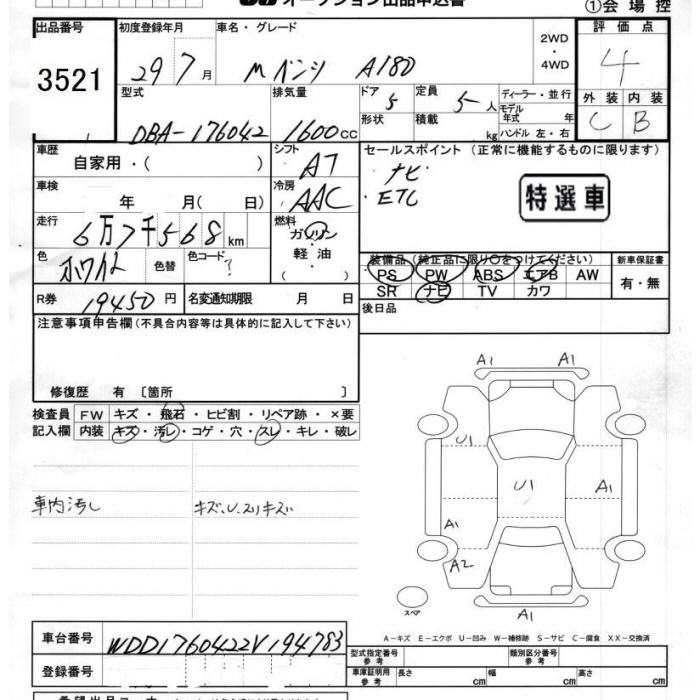 オークション出品申込書
①会場控
出品番号
3521
初度登録年月
29 7 月
車名・グレード
Mベンツ A180
2WD
・
4WD
評価点
4
外装 内装
C B
型式
DBA-176042
排気量
1600 cc
ドア
5
形状
定員
5 人
積載
kg
ディーラー・並行
モデル
年式 年
ハンドル 左・右
車歴
自家用・( )
シフト
AT
セールスポイント (正常に機能するものに限ります)
ナビ
ETC
特選車
車検
年 月( 日)
冷房
AAC
走行
6万7千568 km
燃料
ガソリン
・
軽油
・( )
色
ホワイト
色替
色コード
?
装備品 (純正品に限り○をつけてください)
PS PW ABS エアB AW
SR ナビ TV カワ
新車保証書
有・無
R券
19450 円
名変通知期限 月 日
後日品
注意事項申告欄(不具合内容等は具体的に記入して下さい)
修復歴 有 〔箇所 〕
検査員
記入欄
FW キズ・飛石・ヒビ割・リペア跡・×要
内装 キズ・汚レ・コゲ・穴・スレ・キレ・破レ
車内汚し
キズ、U、スリキズ
A1 A1
U1
U1
A1
A1
A2
A1
スペア
A－キズ E－エクボ U－凹み W－補修跡 S－サビ C－腐食 XX－交換済
車台番号
WDD1760422V194783
登録番号
型式指定番号
参考
類別区分番号
参考
車庫証明用
参考
長さ cm
幅 cm
高さ cm